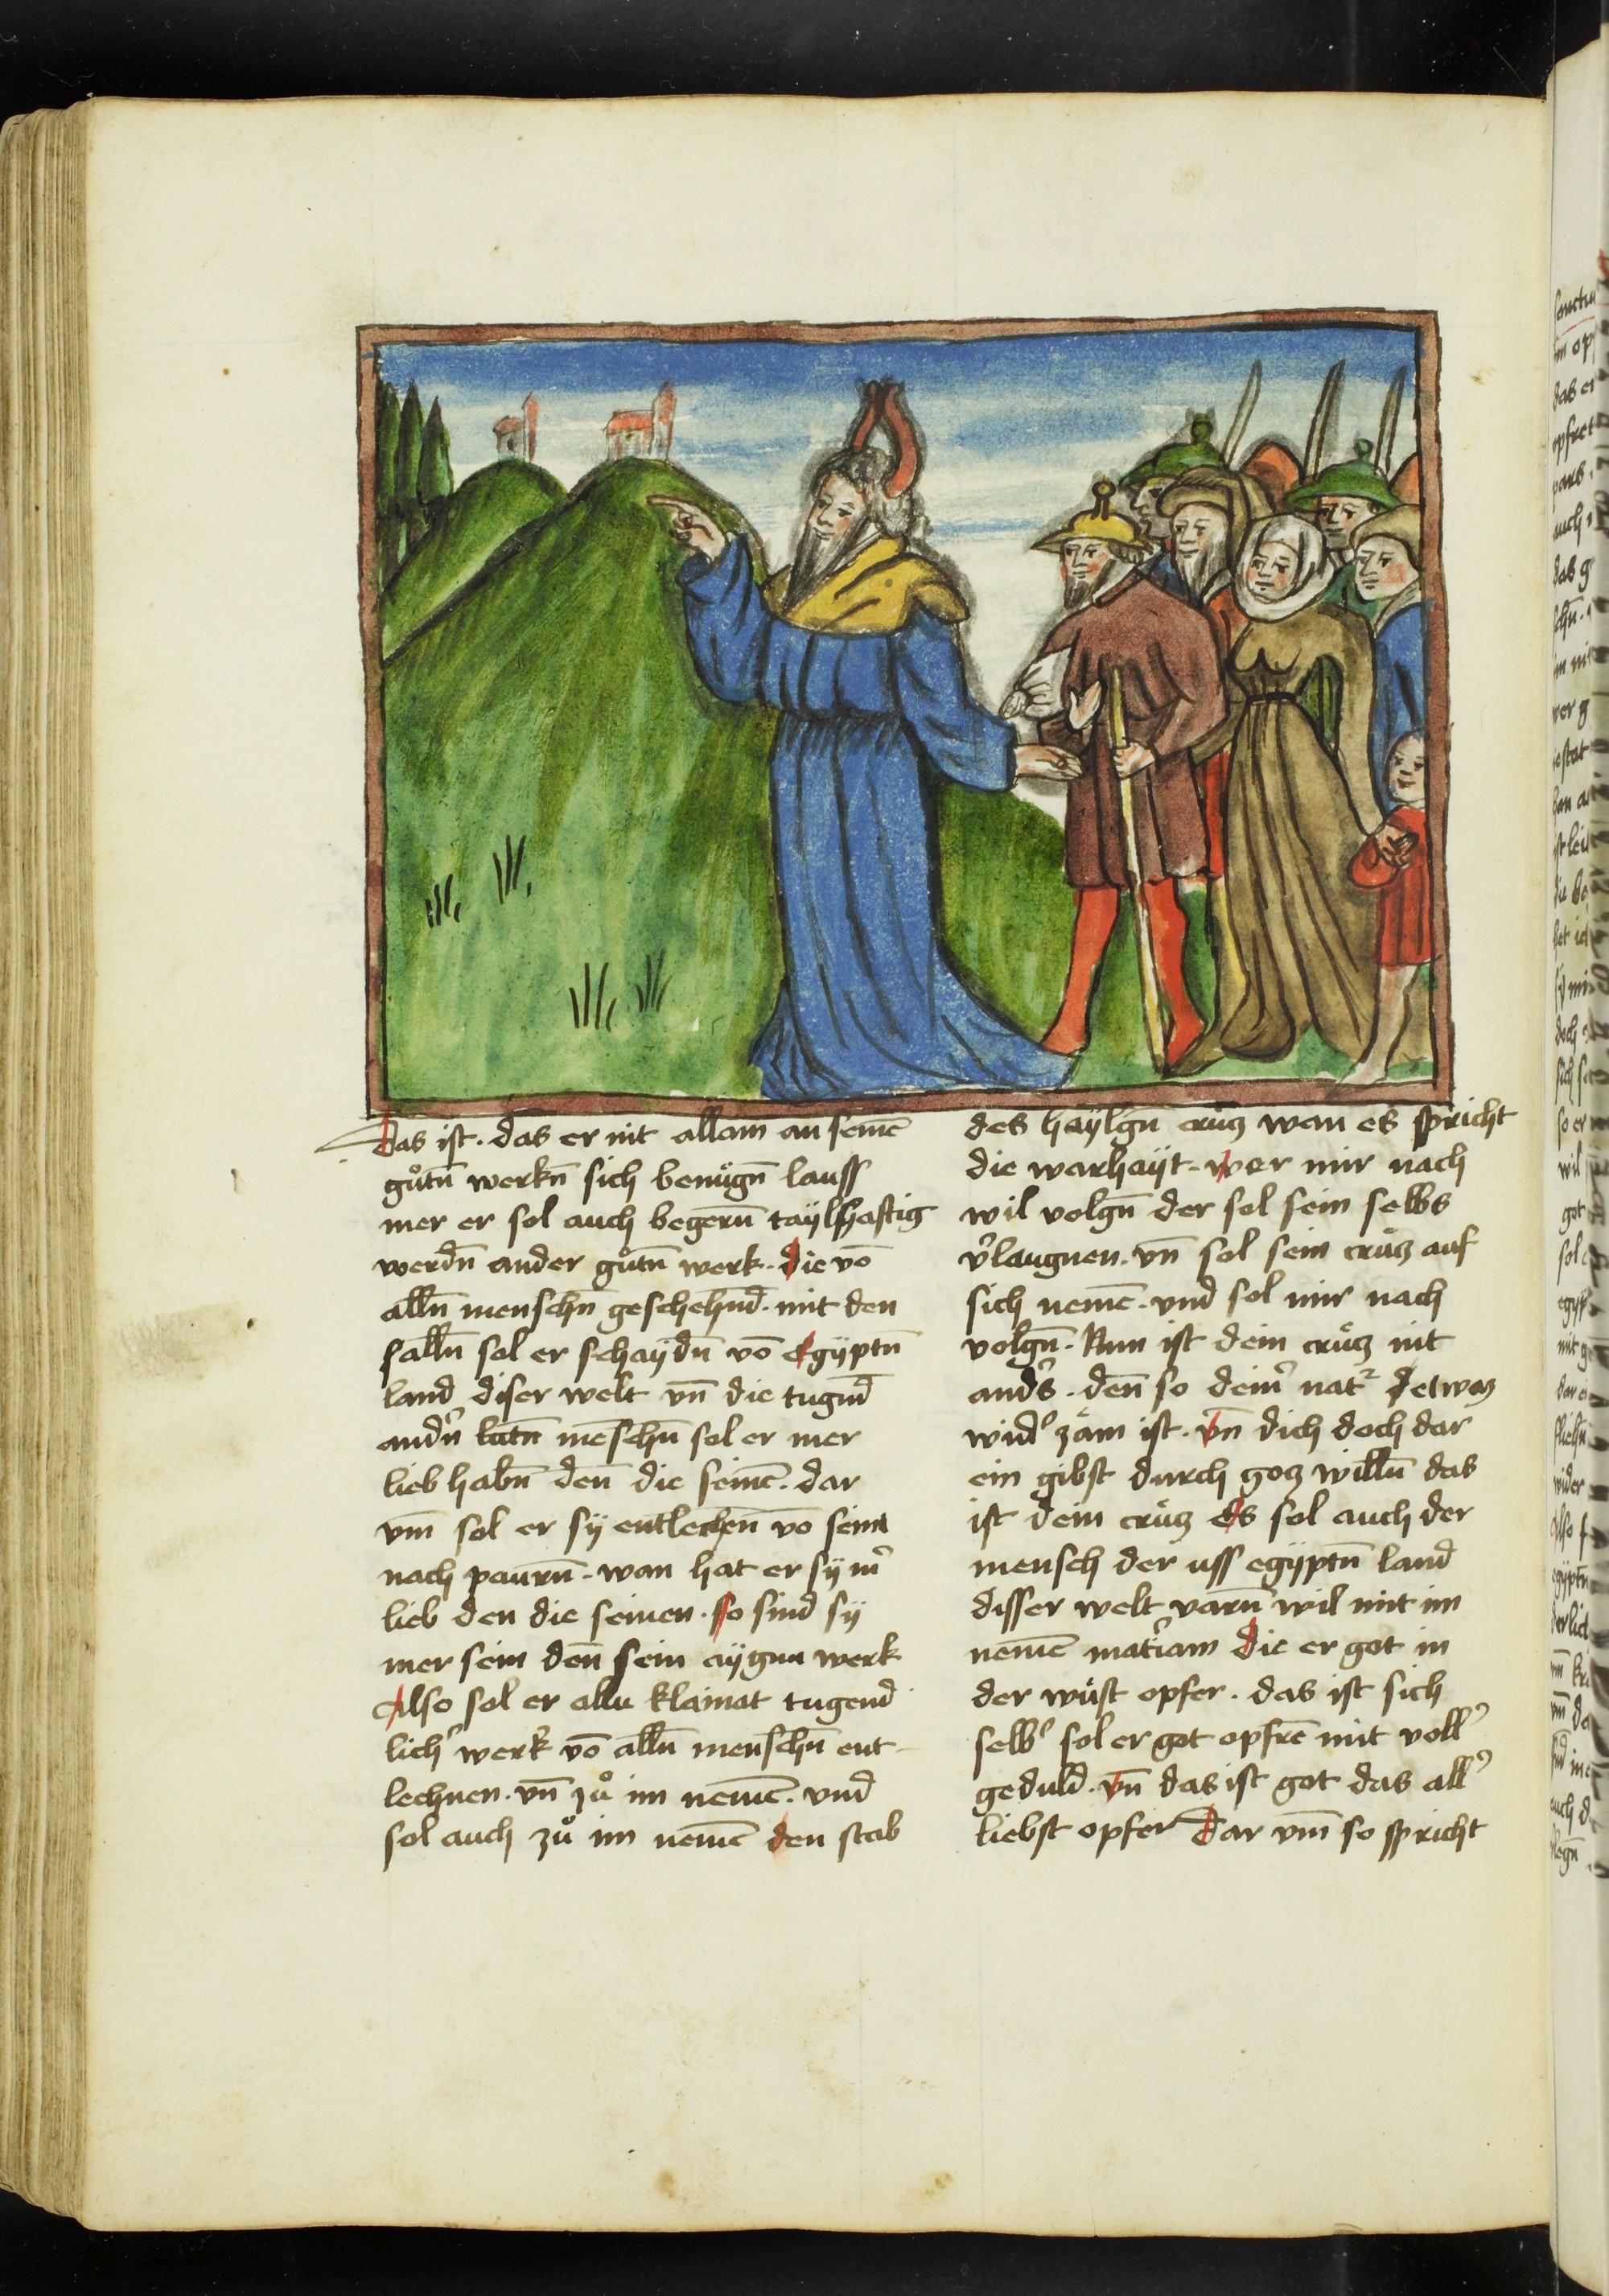 Das ist · das er nit allain an seinē
gůtn̄ werkn̄ sich benügn̄ lauss
mer er sol auch begern̄ taÿlhaftig
werdn̄ ander gůtn̄ werk · die vō
alln̄ menschn̄ geschehnd̄ · mit den
salln̄ sol er schaÿdn̄ vō Egÿptn̄
land diser welt vn̄ die tugnd̄
andn̄ mēschn̄ sol er mer
lieb habn̄ den̄ die seinē · dar
vm̄ sol er sÿ entlechen̄ vō seinn
nach paurn̄ · wan hat er sÿ m̉
lieb den die seinen · so sind sÿ
mer sein den̄ sein aÿgnn werk
Also sol er alle klainat tugend
lich̉ werk vō alln̄ menschn̄ ent
lechnen · vn̄ zů im nemē · vnd
sol auch zů im nemē den stab
des haÿlgn̄ crütz wan es spricht
die warhaÿt · wer mir nach
wil volgn̄ der sol sein selbs
v̉laugnen · vn̄ sol sein crütz auf
sich nemē · vnd sol mir nach
volgn̄ · Nun ist dein crütz nit
and̉s · den̄ so dein̉ nat² etwaz
wid̉ zäm ist · vn̄ dich doch dar
ein gibst durch gotz willn̄ das
ist dein crütz es sol auch der
mensch der uss egÿptn̄ land
disser welt varn̄ wil mit im
nemē mat̉iam die er got in
der wüst opfer · das ist sich
selb̉ sol er got opfrē mit voll̉
geduld · vn̄ das ist got das all̉
liebst opfer Dar vm̄ so spricht